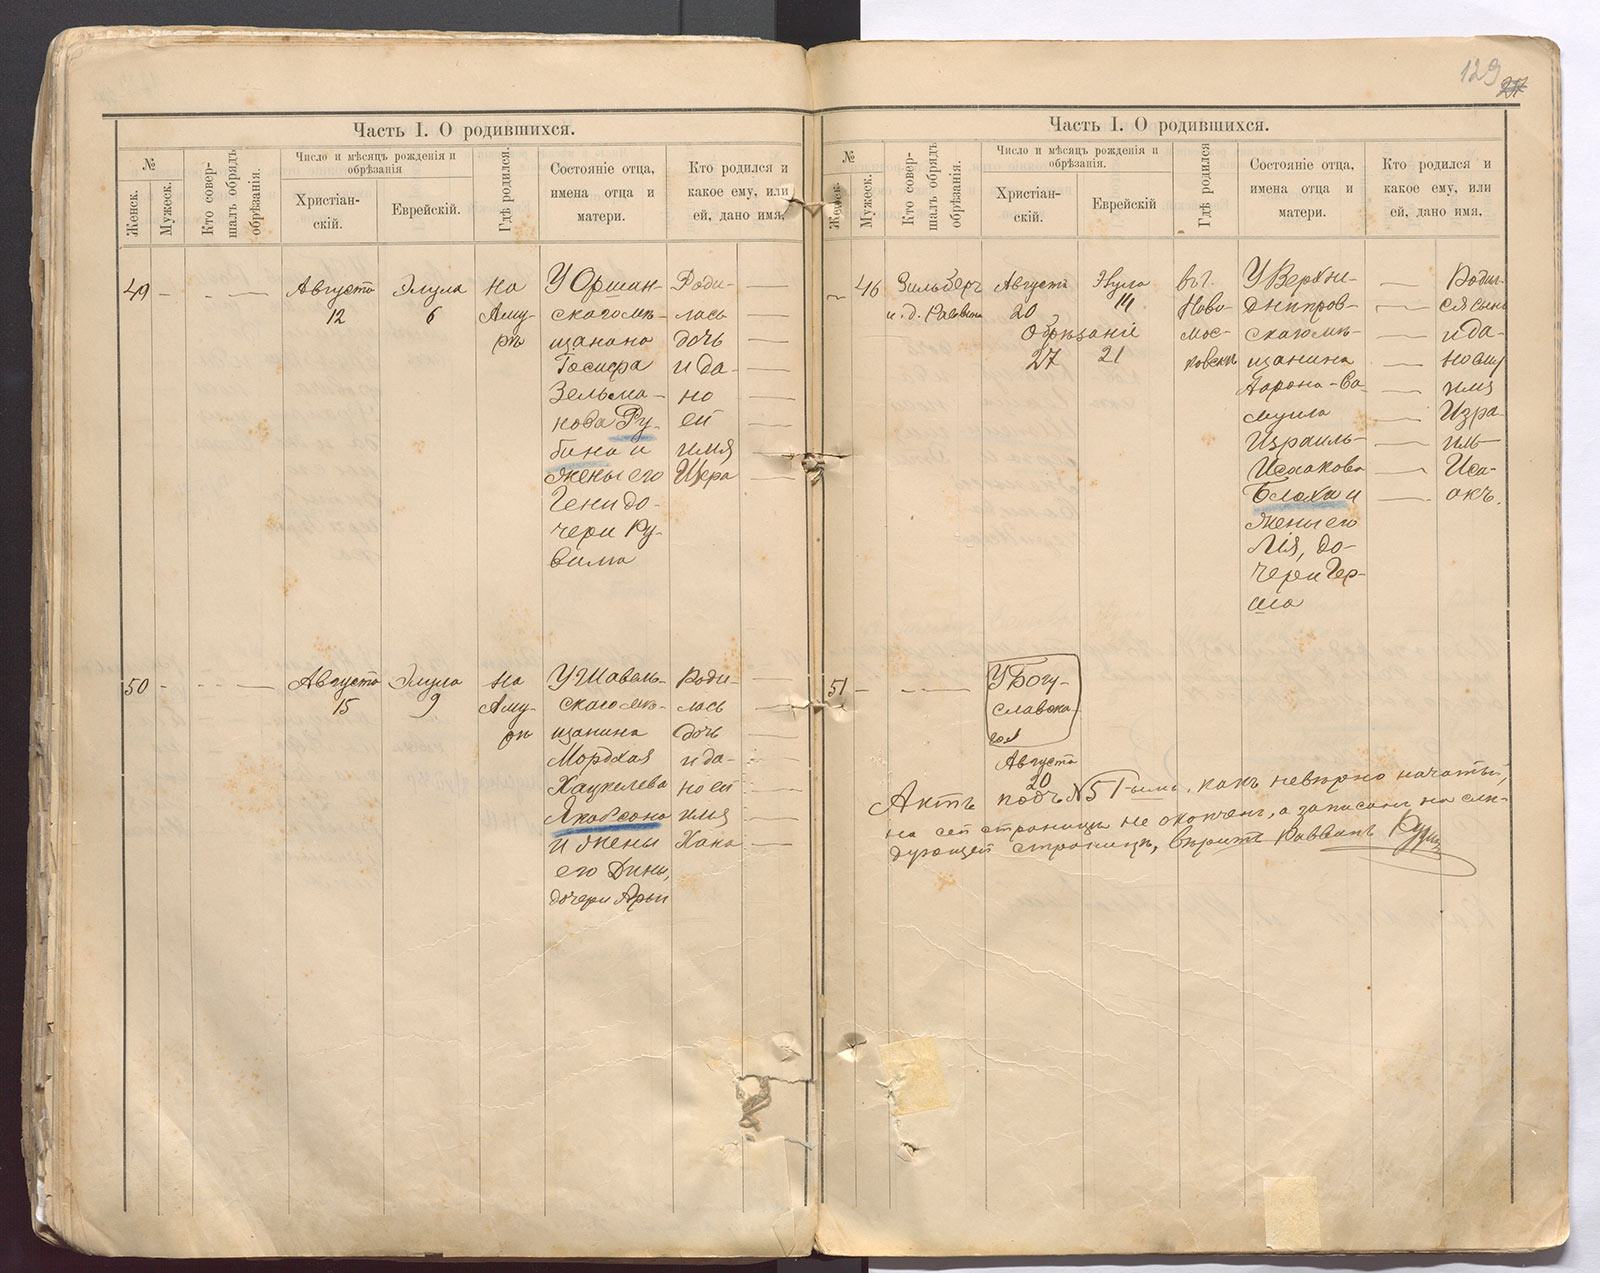 129
27
Часть I. О родившихся.
№
Женск.
Мужеск.
Кто совер-
шалъ обрядъ
обрѣзанія.
Число и мѣсяцъ рожденія и
обрѣзанія
Христіан-
скій.
Еврейскій.
Гдѣ родился.
Состояніе отца,
имена отца и
матери.
Кто родился и
какое ему, или
ей, дано имя.
49
Августа
12
Элула
6
на
Аму-
рѣ
У Оршан-
скаго мѣ-
щанина
Іосифа
Зельма-
нова Ру-
бина и
жены его
Гени до-
чери Ру-
вима
Роди-
лась
дочь
и да-
но
ей
имя
50
Августа
15
Элула
9
на
Аму-
рѣ
У Шавель-
скаго мѣ-
щанина
Мордхая
Хацкелева
Якобсона
и жены
его Дины,
дочери Арьи
Роди-
лась
дочь
и да-
но ей
имя
Хана
Часть I. О родившихся.
№
Женск.
Мужеск.
Кто совер-
шалъ обрядъ
обрѣзанія.
Число и мѣсяцъ рожденія и
обрѣзанія.
Христіан-
скій.
Еврейскій
Гдѣ родился
Состояніе отца,
имена отца и
матери.
Кто родился и
какое ему, или
ей, дано имя.
46
Зильберъ
и. д. Раввина
Августа
20
14
Обрѣзаніе
27
21
въ г.
Ново-
мос-
ковскѣ
У Верхне-
днѣпров-
скаго мѣ-
щанина
Аарона-Са-
муила
Израиль-
Исаакова
Блоха и
жены его
Лія, до-
чери Гер-
ша
Родил-
ся сынъ
и да-
но ему
имя
Изра-
иль
Иса-
акъ.
51
У Богу-
славска-
го
Августа
20
Актъ подъ № 51-ымъ, какъ невѣрно начатый,
на сей страницѣ не оконченъ, а записанъ на слѣ-
дующей страницѣ, вѣритъ Раввинъ